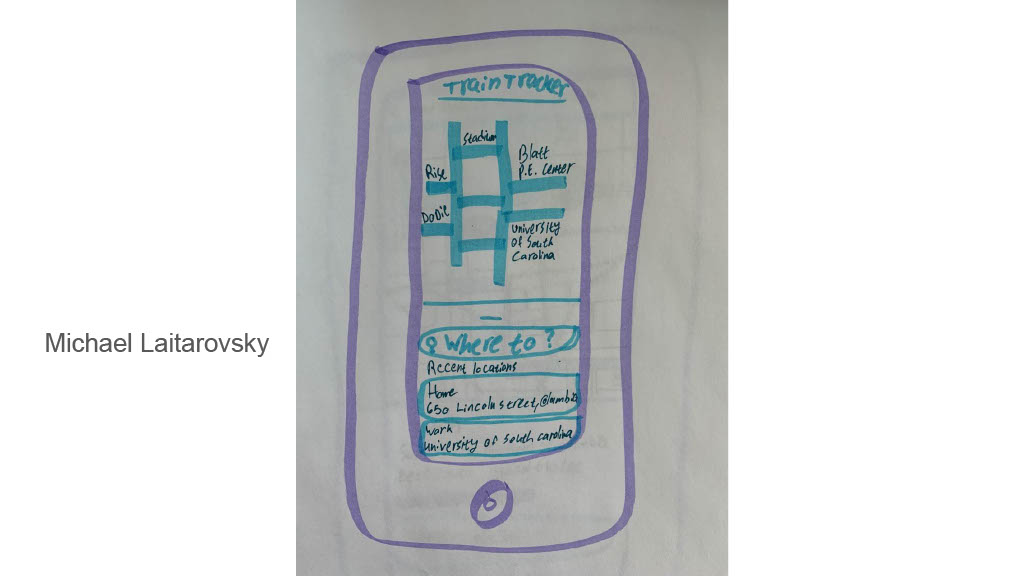 Michael Laitarovsky
TrainTracker
Stadium
Blatt
P.E. Center
Rise
DoDie
University
of South
Carolina
Where to ?
Recent locations
Home
650 Lincoln street, Columbia
Work
University of South Carolina